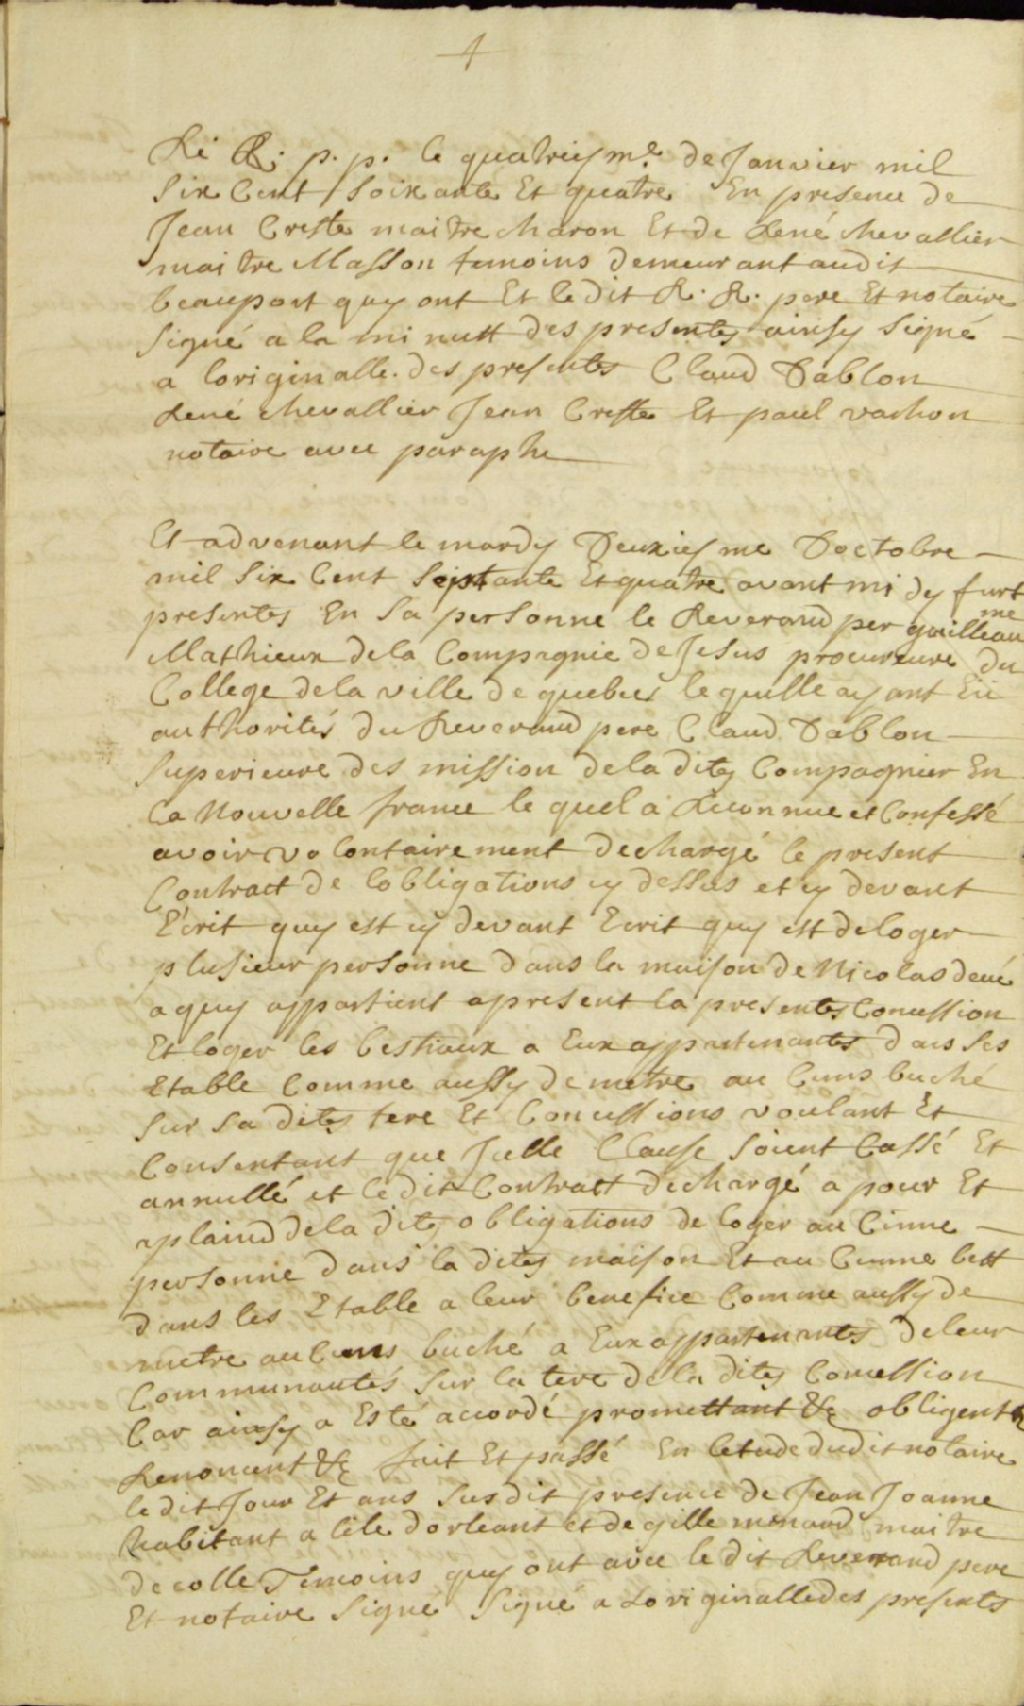 R. R. p. p. le quatriesme de Janvier mil
Six Cent Soixante Et quatre En presence de
Jean Creste maitre charon Et de René chevallier
maitre Masson temoins demeurant audit
beauport quy ont Et ledit R. R. pere Et notaire
signé a la minutt des presentes ainsy signé
a loriginalle des presentes Claud Dablon
René chevallier Jean Creste Et paul vachon
notaire avec paraphe
Et advenant le mardy Deuxiesme Doctobre
mil Six Cent Septante Et quatre avant midy furt
presentes En Sa personne le Reverand per guilleaume
Mathieux dela Compagnie de Jesus procureure du
College dela ville de quebec lequille ayant Eü
authorités du Reverand pere Claud Dablon
Superieure des mission dela dites Compagnier En
la Nouvelle france le quel a Reconnue et Confessé
avoir volontairement dechargé le present
Contract de lobligations cy dessus et cy devant
Ecrit quy est cy devant Ecrit quy est de loger
plusieur personne dans la maison de Nicolas
a quy appartient apresent la presentes Concession
Et loger les bestiaux a Eux appartenantes dans Ses
Etable Comme aussy de metre au buché
Sur Sa dites tere Et Concessions voulant Et
Consentant que Jcelle Clause Soient Cassé Et
annullé et le dit Contract dechargé a pour Et
aplain dela dites obligations de loger au Cunne
personne dans la dites maison Et au Cunne bett
dans les Etable a leur benefice Comme aussy de
metre au buché a Eux appartenantes de leur
Communautés Sur la tere dela dites Concession
Car ainsy a Esté accordé promettant &c obligent
Renoncent &c fait Et passé En letude dudit notaire
le dit Jour Et ans Susdit presence de Jean Joanne
habitant a lile dorleans et de gille menard maitre
decolle Temoins quy ont avec le dit Reverand pere
Et notaire Signé Signé a Loriginalle des presents